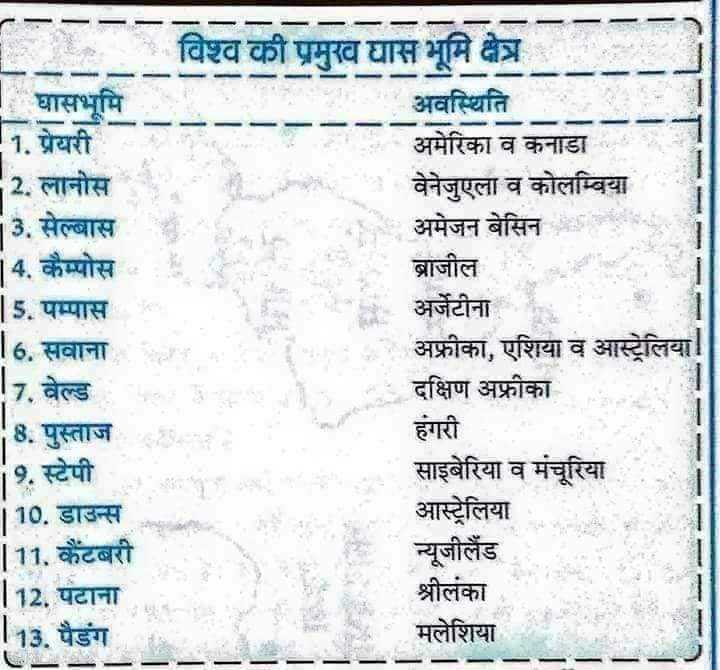 विश्व की प्रमुख घास भूमि क्षेत्र
घासभूमि अवस्थिति
1. प्रेयरी अमेरिका व कनाडा
2. लानोस वेनेजुएला व कोलम्बिया
3. सेल्बास अमेजन बेसिन
4. कैम्पोस ब्राजील
5. पम्पास अर्जेटीना
6. सवाना अफ्रीका, एशिया व आस्ट्रेलिया
7. वेल्ड दक्षिण अफ्रीका
8. पुस्ताज हंगरी
9. स्टेपी साइबेरिया व मंचूरिया
10. डाउन्स आस्ट्रेलिया
11. कैंटबरी न्यूजीलैंड
12. पटाना श्रीलंका
13. पैडंग मलेशिया